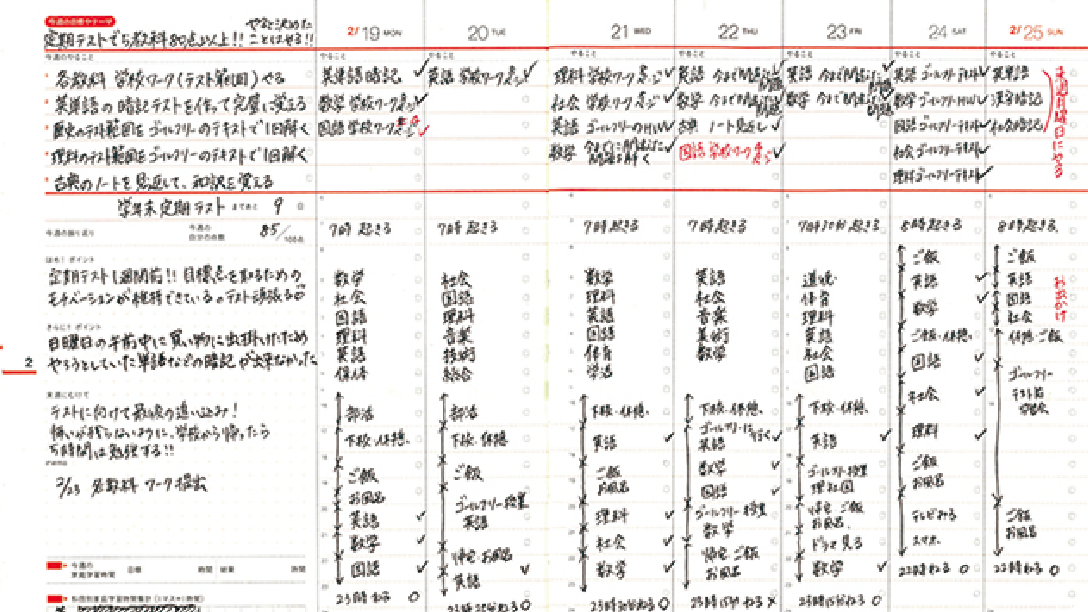 今週の目標やテーマ
やると決めた
定期テストで5教科80点以上!! ことはやる!!
今週のやること
各教科 学校ワーク(テスト範囲)やる
英単語の暗記テストを作って完璧に覚える
歴史のテスト範囲をゴールフリーのテキストで1回解く
理科のテスト範囲をゴールフリーのテキストで1回解く
古典のノートを見返して、和訳を覚える
学年末定期テスト まであと 9 日
今週の振り返り 今週の自分の点数 85/100点
ほめ!ポイント
定期テスト1週間前!! 目標点を取るための
モチベーションが維持できている。テスト頑張るぞ
さらに!ポイント
日曜日の午前中に買い物に出掛けたため
やろうとしていた単語などの暗記が出来なかった
来週にむけて
テストに向けて最後の追い込み!
悔いが残らないように、学校から帰ったら
5時間は勉強する!!
2/23 各教科 ワーク提出
2
今週の家庭学習時間 目標 時間 結果 時間
2/19 MON
やること
英単語暗記
数学 学校ワーク
国語 学校ワーク
7時 起きる
数学
社会
国語
理科
英語
保体
部活
下校・休憩
ご飯
お風呂
英語
数学
国語
23時 ねる
20 TUE
やること
英語 学校ワーク
7時 起きる
社会
国語
理科
音楽
技術
総合
部活
下校・休憩
ご飯
ゴールフリー授業
英語
帰宅 お風呂
英語
21 WED
やること
理科 学校ワーク
社会 学校ワーク
英語 ゴールフリーのHW
数学 今まで間違えた問題を解く
7時 起きる
数学
理科
英語
国語
体育
学活
下校・休憩
英語
ご飯
お風呂
理科
社会
数学
22 THU
やること
英語 今まで間違えた問題
数学 今まで間違えた問題
古典 ノート見返し
国語 学校ワーク
7時 起きる
英語
社会
音楽
美術
数学
下校・休憩
ゴールフリーに行く
英語
数学
国語
ゴールフリー授業
数学
帰宅 ご飯
お風呂
23 FRI
やること
英語 今まで間違えた問題
数学 今まで間違えた問題
起きる
道徳
体育
理科
英語
社会
国語
下校・休憩
英語
ゴールフリー授業
理社国
帰宅 ご飯
お風呂
ドラマ見る
数学
24 SAT
やること
英語 ゴールフリーテキスト
数学 ゴールフリーHW
国語 ゴールフリーテキスト
社会 ゴールフリーテキスト
理科 ゴールフリーテキスト
8時 起きる
ご飯
英語
数学
ご飯・休憩
国語
社会
理科
ご飯
お風呂
テレビみる
スマホ
ねる
2/25 SUN
やること
英単語
漢字暗記
社会暗記
来週月曜日にやる
8時 起きる
ご飯
英語
国語
社会
お出かけ
休憩・ご飯
ゴールフリー
テスト前
ご飯
お風呂
ねる